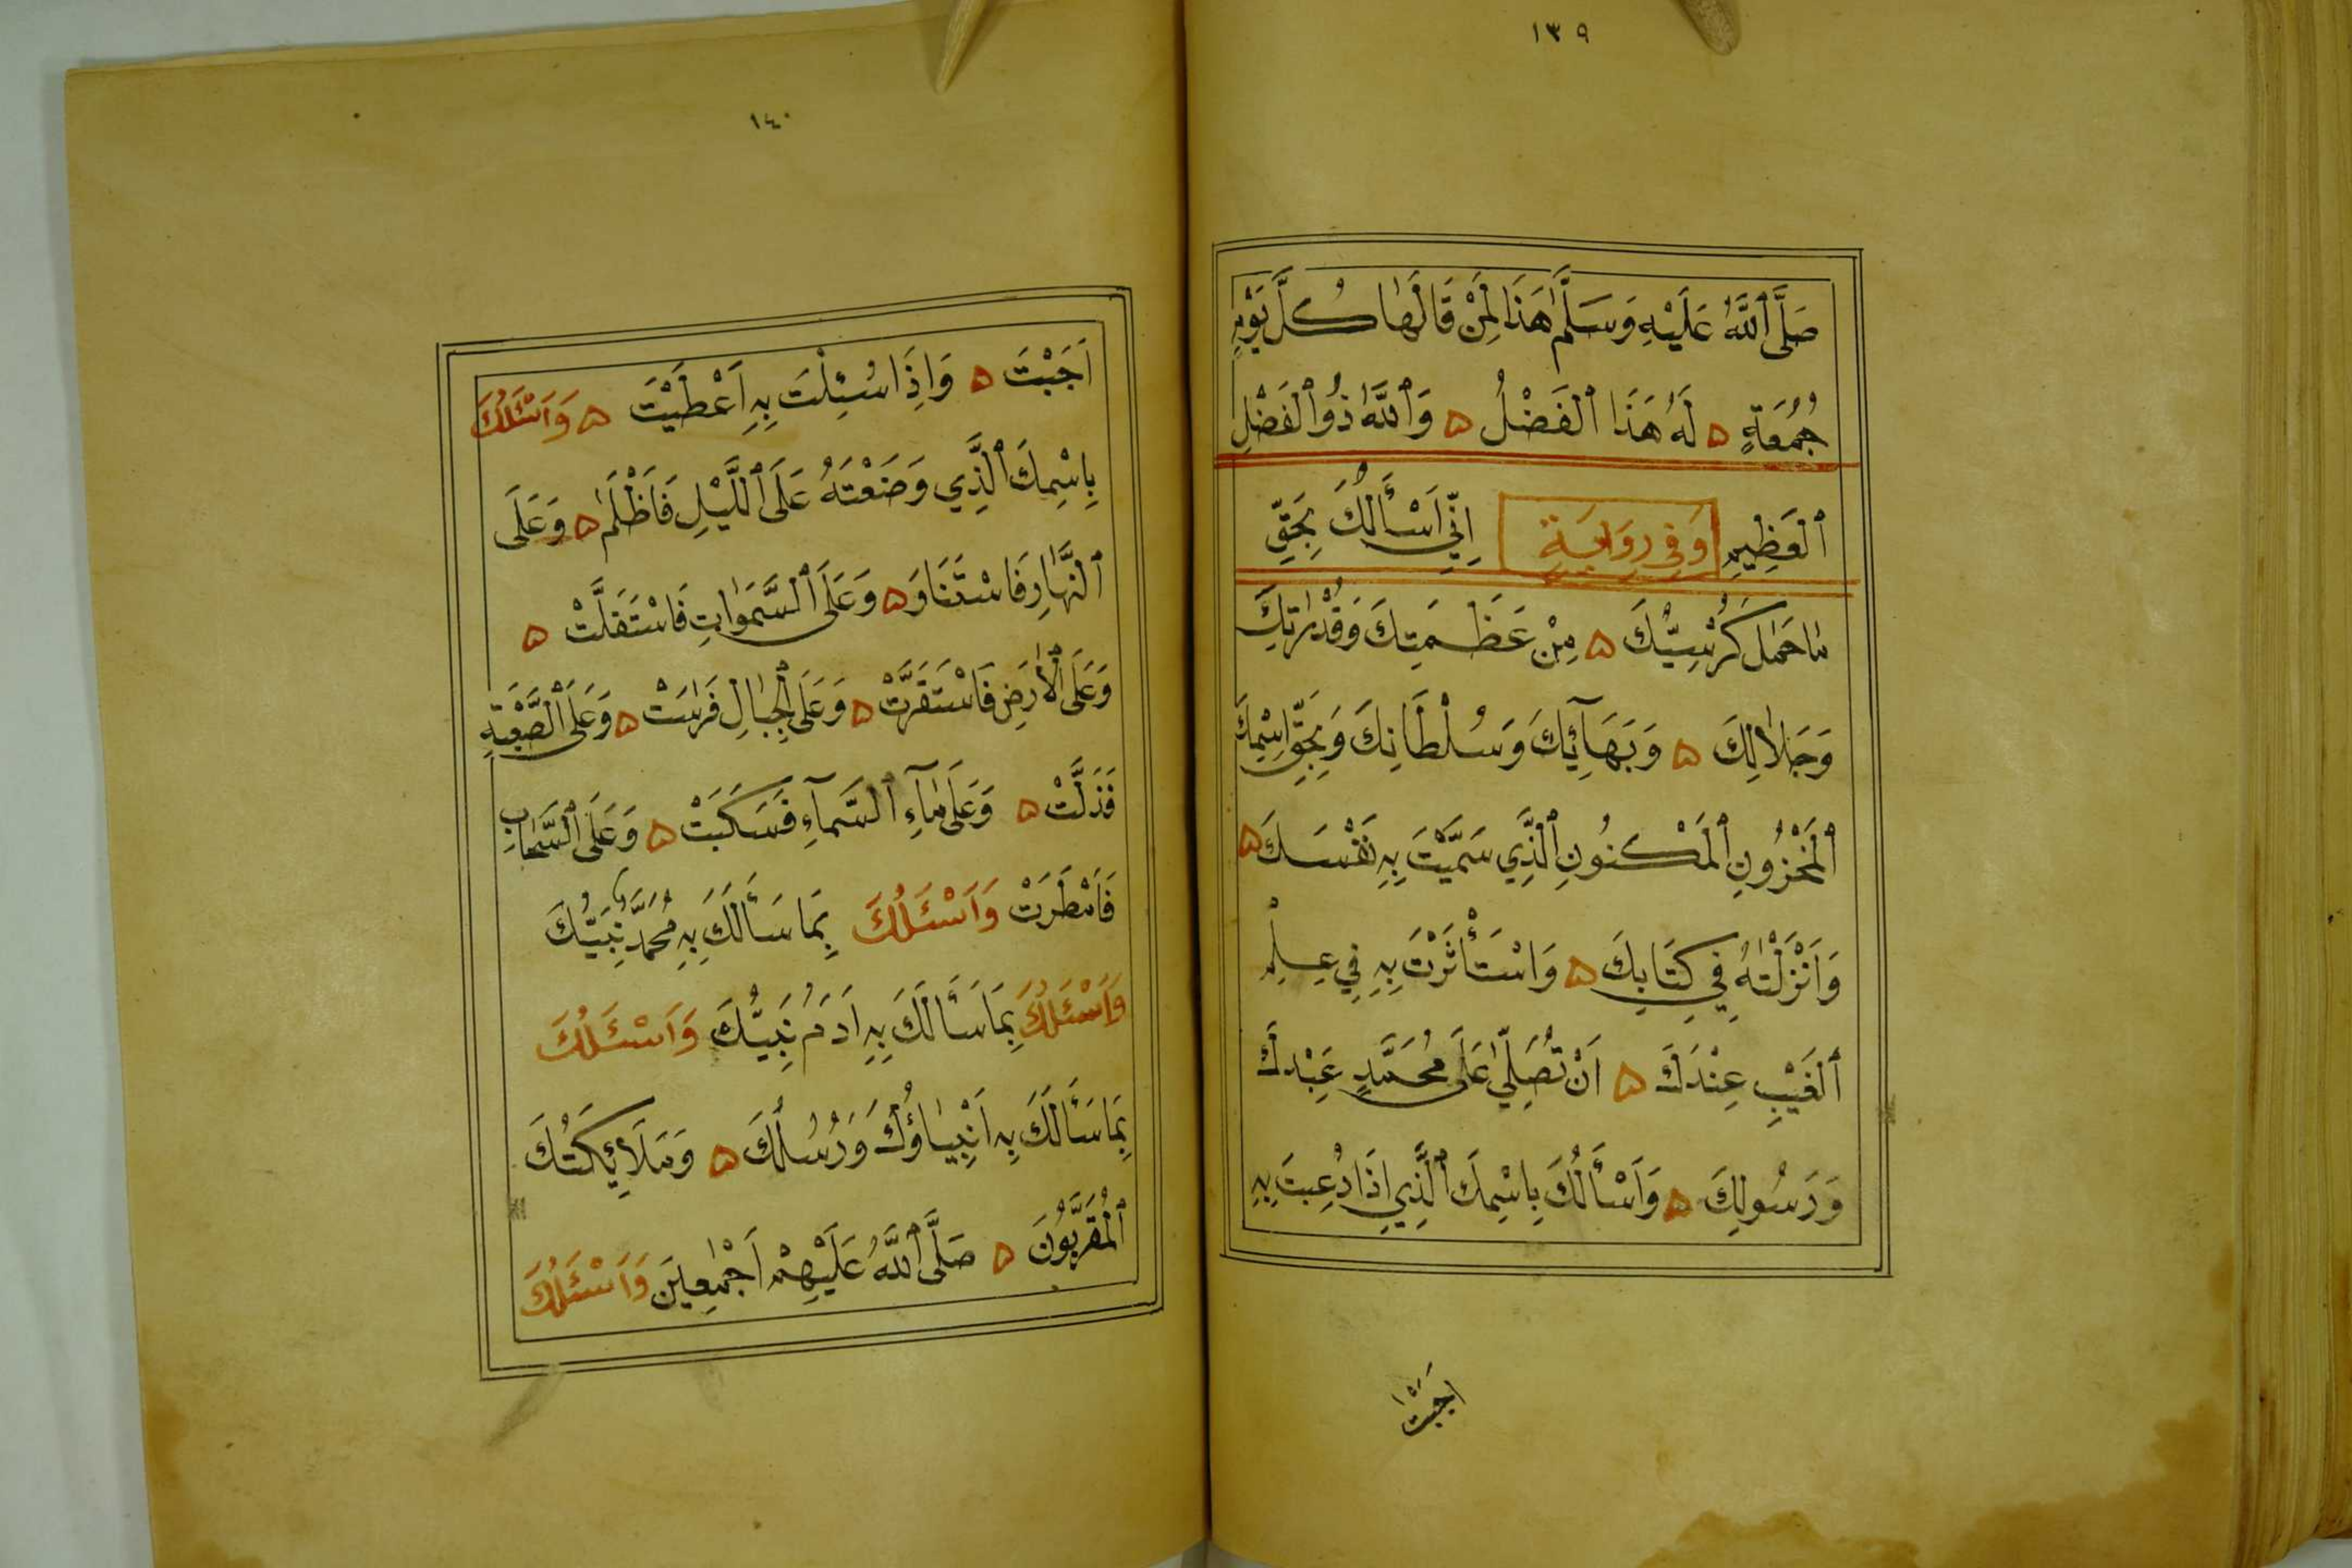 ١٣٩
صَلَّى ٱللَّهُ عَلَيْهِ وَسَلَّمَ هَذَا لِمَنْ قَالَهَا كُلَّ يَوْمِ
جُمُعَةٍ ۵ لَهُ هَذَا ٱلْفَضْلُ ۵ وَٱللَّهُ ذُو ٱلْفَضْلِ
ٱلْعَظِيمِ وَفِي رِوَايَةٍ اِنِّي اَسْأَلُكَ بِحَقِّ
مَا حَمَلَ كُرْسِيُّكَ ۵ مِنْ عَظَمَتِكَ وَقُدْرَتِكَ
وَجَلَالِكَ ۵ وَبَهَآئِكَ وَسُلْطَانِكَ وَبِحَقِّ اسْمِكَ
ٱلْمَخْزُونِ ٱلْمَكْنُونِ ٱلَّذِي سَمَّيْتَ بِهِ نَفْسَكَ ۵
وَاَنْزَلْتَهُ فِي كِتَابِكَ ۵ وَاسْتَأْثَرْتَ بِهِ فِي عِلْمِ
ٱلْغَيْبِ عِنْدَكَ ۵ اَنْ تُصَلِّيَ عَلَى مُحَمَّدٍ عَبْدِكَ
وَرَسُولِكَ ۵ وَاَسْأَلُكَ بِاسْمِكَ ٱلَّذِي اِذَا دُعِيتَ بِهِ
اَجَبْتَ
١٤٠
اَجَبْتَ ۵ وَاِذَا سُئِلْتَ بِهِ اَعْطَيْتَ ۵ وَاَسْئَلُكَ
بِاسْمِكَ ٱلَّذِي وَضَعْتَهُ عَلَى ٱللَّيْلِ فَاَظْلَمَ ۵ وَعَلَى
ٱلنَّهَارِ فَاسْتَنَارَ ۵ وَعَلَى ٱلسَّمَوَاتِ فَاسْتَقَلَّتْ ۵
وَعَلَى ٱلْاَرْضِ فَاسْتَقَرَّتْ ۵ وَعَلَى ٱلْجِبَالِ فَرَسَتْ ۵ وَعَلَى ٱلصَّعْبَةِ
فَذَلَّتْ ۵ وَعَلَى مَآءِ ٱلسَّمَآءِ فَسَكَبَتْ ۵ وَعَلَى ٱلسَّحَابِ
فَاَمْطَرَتْ وَاَسْئَلُكَ بِمَا سَأَلَكَ بِهِ مُحَمَّدٌ نَبِيُّكَ
وَاَسْئَلُكَ بِمَا سَأَلَكَ بِهِ اَدَمُ نَبِيُّكَ وَاَسْئَلُكَ
بِمَا سَأَلَكَ بِهِ اَنْبِيَاؤُكَ وَرُسُلُكَ ۵ وَمَلَائِكَتُكَ
ٱلْمُقَرَّبُونَ ۵ صَلَّى ٱللَّهُ عَلَيْهِمْ اَجْمَعِينَ وَاَسْئَلُكَ